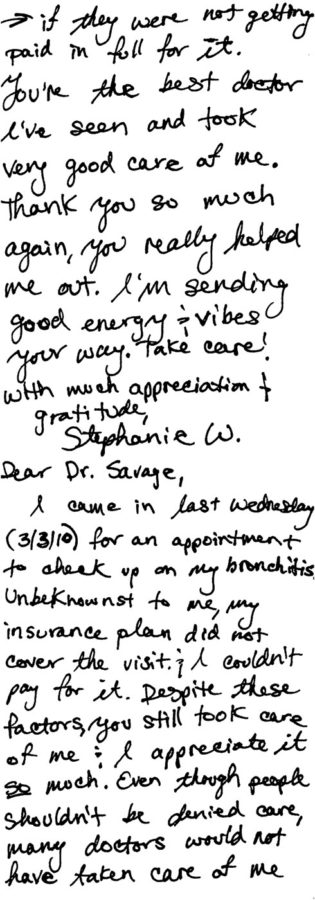 Dear Dr. Savage,
I came in last Wednesday
(3/3/10) for an appointment
to check up on my bronchitis.
Unbeknownst to me, my
insurance plan did not
cover the visit & I couldn't
pay for it. Despite these
factors, you still took care
of me & I appreciate it
so much. Even though people
shouldn't be denied care,
many doctors would not
have taken care of me
→ if they were not getting
paid in full for it.
You're the best doctor
I've seen and took
very good care of me.
Thank you so much
again, you really helped
me out. I'm sending
good energy & vibes
your way. Take care!
With much appreciation &
gratitude,
Stephanie W.